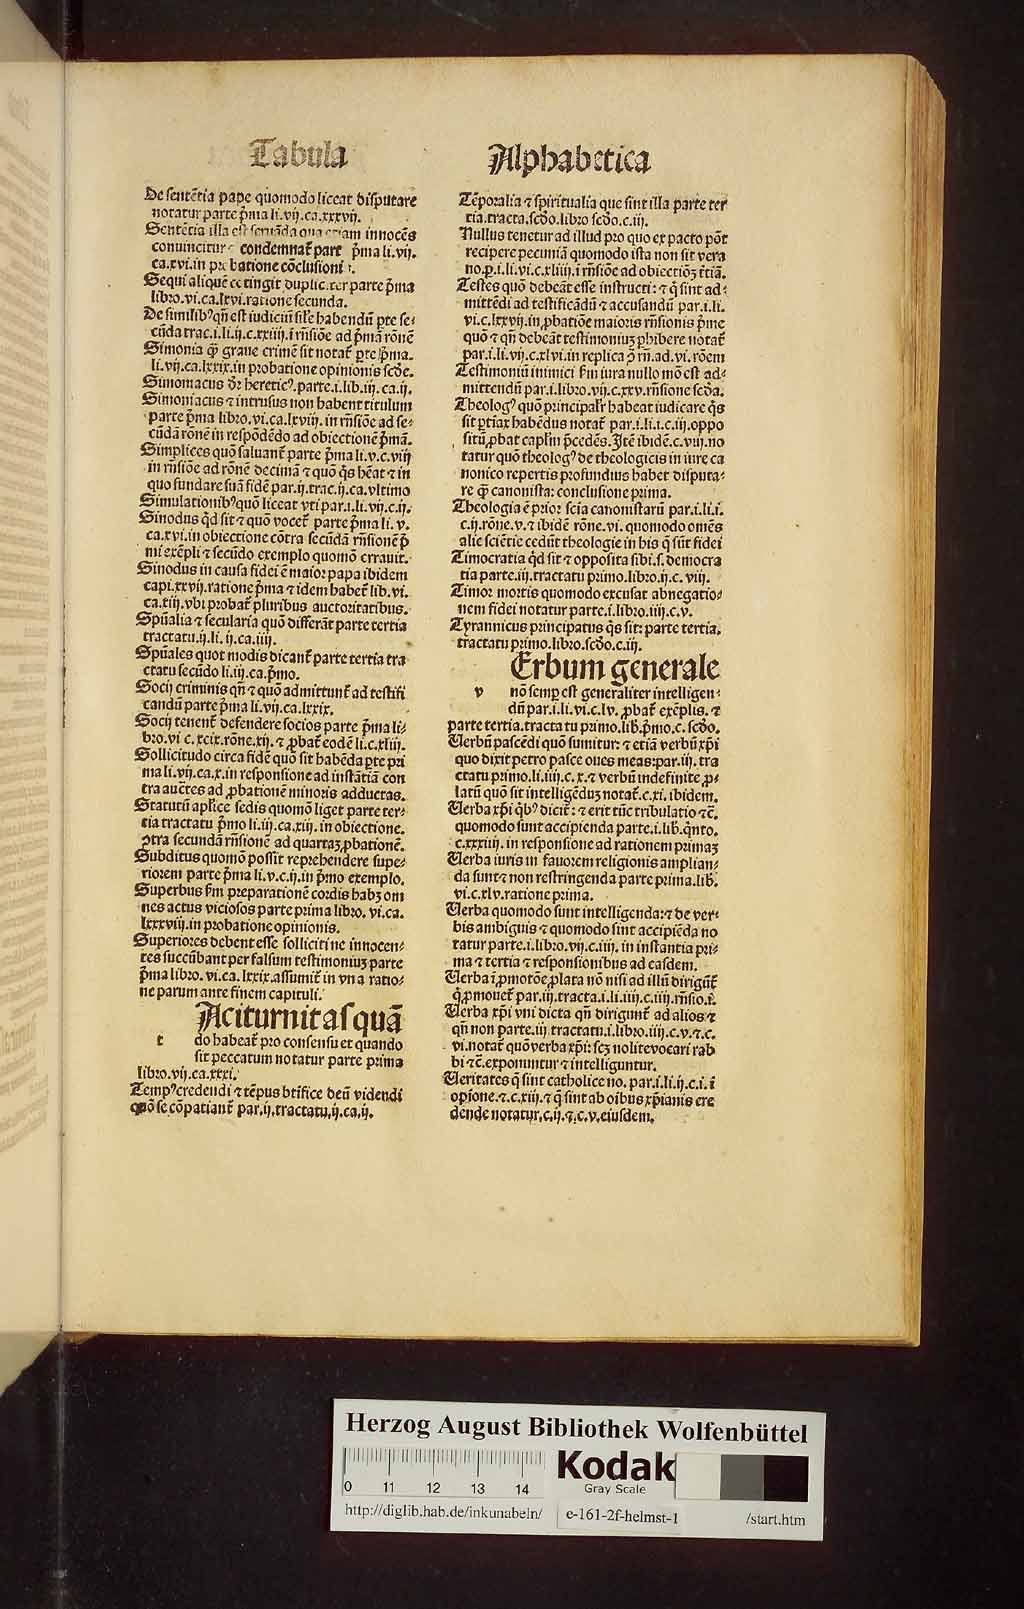 Tabula
De sentētia pape quomodo liceat disputare
notatur parte p̄ma li.vij.ca.xxxvij.
Sentētia illa est seruāda qua etiam innocēs
conuincitur condemnat᷑ part p̄ma li.vij.
ca.xvi.in probatione cōclusioni
Sequi aliquē cōtingit duplic.ter parte p̄ma
libro.vi.ca.lxvi.ratione secunda.
De similibꝰ qn̄ est iudiciū sil'e habendū ꝑte se-
cūda trac.i.li.ij.c.xxiiij.i rn̄siōe ad p̄mā rōnē
Simonia ꝙ graue crimē sit notat᷑ ꝑte p̄ma.
li.vij.ca.lxxix.in probatione opinionis scd̄e.
Simoniacus d̄r hereticꝰ.parte.i.lib.iij.ca.ij.
Simoniacus ⁊ intrusus non habent titulum
parte p̄ma libro.vi.ca.lxviij. in rn̄siōe ad se-
cūdā rōnē in respōdēdo ad obiectionē p̄mā.
Simplices quō saluant᷑ parte p̄ma li.v.c.viij
in rn̄siōe ad rōnē decimā ⁊ quō q̄s hēat ⁊ in
quo fundare suā fidē par.ij.trac.ij.ca.vltimo
Simulationibꝰ quō liceat vti par.i.li.vij.c.ij.
Sinodus qd̄ sit ⁊ quō vocet᷑ parte p̄ma li.v.
ca.xvi.in obiectione cōtra secūdā rn̄sionē p̄
mi exēpli ⁊ secūdo exemplo quomō errauit.
Sinodus in causa fidei ē maior papa ibidem
capi.xxvij.ratione p̄ma ⁊ idem habet᷑ lib.vi.
ca.xiij.vbi probat᷑ pluribus auctoritatibus.
Spūalia ⁊ secularia quō differāt parte tertia
tractatu.ij.li.ij.ca.iiij.
Spūales quot modis dicant᷑ parte tertia tra
ctatu secūdo li.iij.ca.p̄mo.
Socij criminis qn̄ ⁊ quō admittunt᷑ ad testifi
candū parte p̄ma li.vij.ca.lxxix.
Socij tenent᷑ defendere socios parte p̄ma li-
bro.vi c.xcix.rōne.xij.⁊ ꝓbat᷑ eodē li.c.xliij.
Sollicitudo circa fidē quō sit habēda ꝑte pri
ma li.vij.ca.x.in responsione ad instātiā con
tra auctes ad ꝓbationē minoris adductas.
Statutū apl'ice sedis quomō liget parte ter-
tia tractatu p̄mo li.iij.ca.xiij.in obiectione.
ꝯtra secundā rn̄sionē ad quartaꝫ ꝓbationē.
Subditus quomō possit reprehendere supe-
riorem parte p̄ma li.v.c.ij.in p̄mo exemplo.
Superbus fm preparationē cordis habꝫ om
nes actus viciosos parte prima libro. vi.ca.
lxxxviij.in probatione opinionis.
Superiores debent esse solliciti ne innocen-
tes succūbant per falsum testimoniuꝫ parte
p̄ma libro.vi.ca.lxxix.assumit᷑ in vna ratio-
ne parum ante finem capituli.
Aciturnitas quā
t do habeat᷑ pro consensu et quando
sit peccatum notatur parte prima
libro.vij.ca.xxxi.
Tempꝰ credendi ⁊ tēpus btifice deū videndi
quō se cōpatiant᷑ par.ij.tractatu.ij.ca.ij.
Alphabetica
Tēporalia ⁊ spiritualia que sint illa parte ter
tia.tracta.scd̄o.libro scd̄o.c.iij.
Nullus tenetur ad illud pro quo ex pacto pōt
recipere pecuniā quomodo ista non sit vera
no.ꝑ.i.li.vi.c.xliiij.i rn̄siōe ad obiectiōꝫ t̄tiā.
Testes quō debeāt esse instructi: ⁊ q̄ sint ad-
mittēdi ad testificādū ⁊ accusandū par.i.li.
vi.c.lxxvij.in ꝓbatiōe maioris rn̄sionis p̄me
quō ⁊ qn̄ debeāt testimoniuꝫ ꝓhibere notat᷑
par.i.li.vij.c.xlvi.in replica ꝙ rn̄.ad.vi.rōem
Testimoniū inimici fm iura nullo mō est ad-
mittendū par.i.libro.vij.c.xxv.rn̄sione scd̄a.
Theologꝰ quō principalr̄ habeat iudicare q̄s
sit ꝑtiax habēdus notat᷑ par.i.li.i.c.iij.oppo
sitū ꝓbat caplm p̄cedēs.Itē ibidē.c.viij.no
tatur quō theologꝰ de theologicis in iure ca
nonico repertis profundius habet disputa-
re ꝙ canonista: conclusione prima.
Theologia ē prior scia canonistarū par.i.li.i.
c.ij.rōne.v.⁊ ibidē rōne.vi. quomodo omēs
alie sciētie cedūt theologie in his q̄ sūt fidei
Timocratia qd̄ sit ⁊ opposita sibi.s.democra
tia parte.iij.tractatu primo.libro.ij.c.viij.
Timor mortis quomodo excusat abnegatio-
nem fidei notatur parte.i.libro.iiij.c.v.
Tyrannicus principatus q̄s sit: parte tertia.
tractatu primo.libro.scd̄o.c.iij.
Erbum generale
v nō semꝑ est generaliter intelligen-
dū par.i.li.vi.c.lv. ꝓbat᷑ exēplis. ⁊
parte tertia.tracta tu primo.lib̄.p̄mo.c.scd̄o.
Verbū pascēdi quō sumitur: ⁊ etiā verbū xp̄i
quo dixit petro pasce oues meas:par.iij. tra
ctatu primo.li.iiij.c.x.⁊ verbū indefinite ꝓ-
latū quō sit intelligēduꝫ notat᷑.c.xi.ibidem.
Verba xp̄i qbꝰ dicit᷑: ⁊ erit tūc tribulatio ⁊c̄.
quomodo sunt accipienda parte.i.lib̄.q̄nto.
c.xxxiiij.in responsione ad rationem primaꝫ
Verba iuris in fauorem religionis amplian-
da sunt ⁊ non restringenda parte prima.lib̄.
vi.c.xlv.ratione prima.
Verba quomodo sunt intelligenda:⁊ de ver-
bis ambiguis ⁊ quomodo sint accipiēda no
tatur parte.i.libro.vij.c.iiij. in instantia pri-
ma ⁊ tertia ⁊ responsionibus ad easdem.
Verba ī ꝓmotōe ꝓlata nō nisi ad illū dirigūt᷑
q̄ ꝓmouet᷑ par.iij.tracta.i.li.iiij.c.iiij.rn̄sio.f̄.
Verba xp̄i vni dicta qn̄ dirigunt᷑ ad alios ⁊
qn̄ non parte.iij.tractatu.i.libro.iiij.c.v.⁊.c.
vi.notat᷑ quō verba xp̄i: scꝫ nolite vocari rab
bi ⁊c̄.exponuntur ⁊ intelliguntur.
Veritates q̄ sint catholice no. par.i.li.ij.c.i. ī
opione.⁊.c.xiij.⁊ q̄ sint ab oībus xp̄ianis cre
dende notatur.c.ij.⁊.c.v.eiusdem.
Herzog August Bibliothek Wolfenbüttel
Kodak
Gray Scale
0 11 12 13 14
http://diglib.hab.de/inkunabeln/ e-161-2f-helmst-1 /start.htm